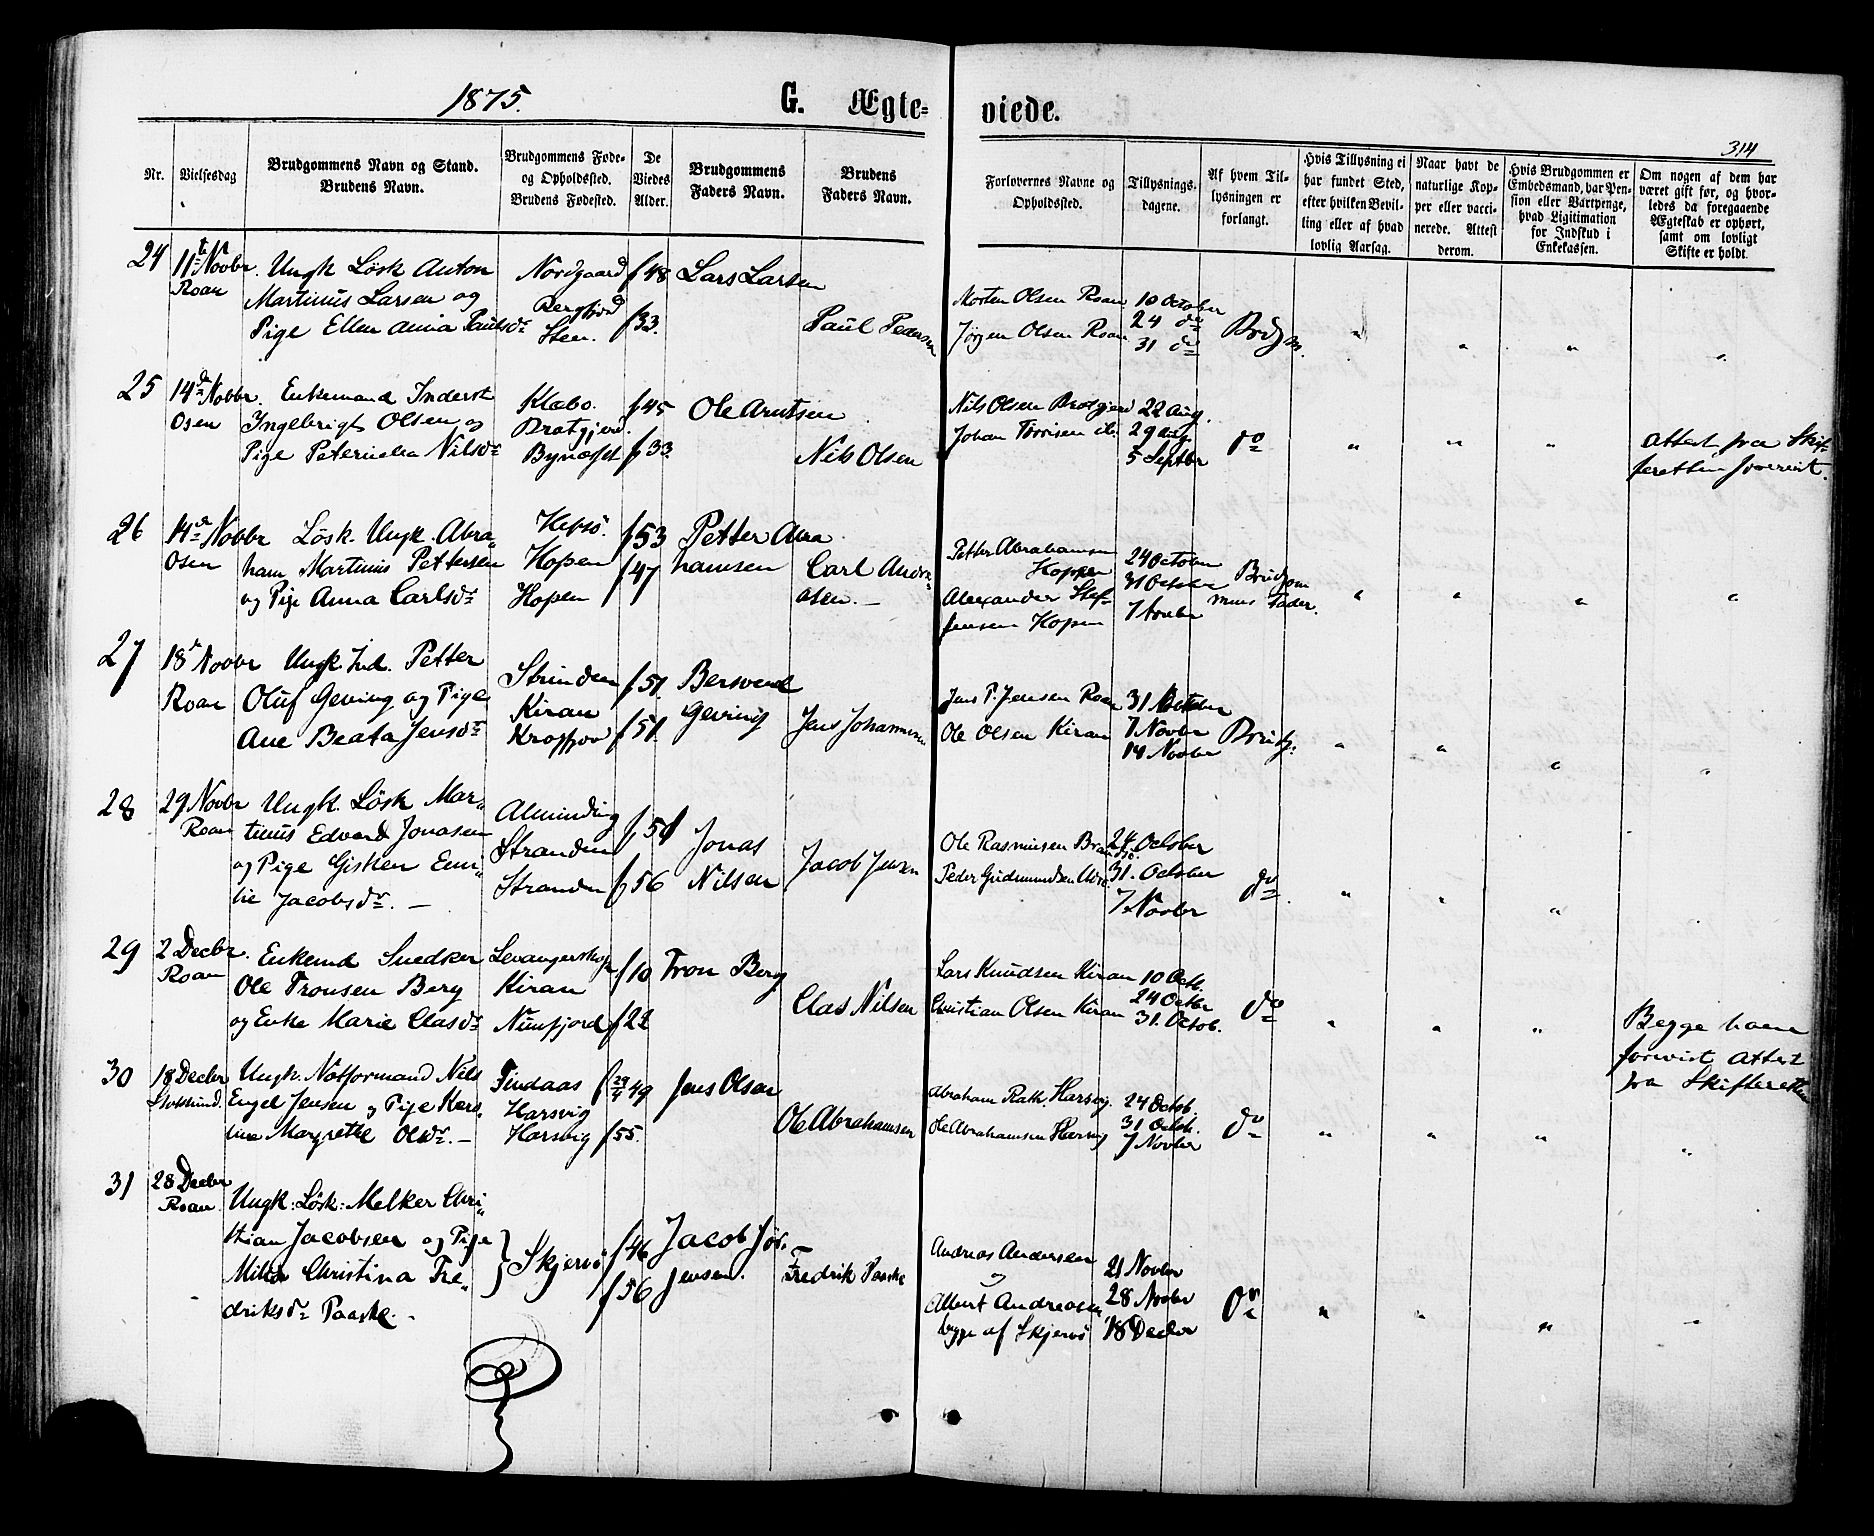 1875.
G. Ægte-
viede.
314
Nr.
Vielsesdag
Brudgommens Navn og Stand.
Brudens Navn.
Brudgommens Føde-
og Opholdssted.
Brudens Fødested.
De
Viedes
Alder.
Brudgommens
Faders Navn.
Brudens
Faders Navn.
Forlovernes Navne og
Opholdssted.
Tillysnings-
dagene.
Af hvem Til-
lysningen er
forlangt.
Hvis Tillysning ei
har fundet Sted,
efter hvilken Bevil-
ling eller af hvad
lovlig Aarsag.
Naar havt de
naturlige Kop-
per eller vacci-
nerede. Attest
derom.
Hvis Brudgommen er
Embedsmand, har Pen-
sion eller Vartpenge,
hvad Legitimation
for Indskud i
Enkekassen.
Om nogen af dem har
været gift før, og hvor-
ledes da foregaaende
Ægteskab er ophørt,
samt om lovligt
Skifte er holdt.
24
11te Novbr.
Roan
Ungk Løsk Anton
Martinus Larsen og
Pige Ellen Anna Paulsdr
Nordgaard
Bergfjord
Sten.
f 48
f 33.
Lars Larsen
Paul Pedersen
Morten Olsen Roan
Jørgen Olsen Roan
10 October
24 do
31 do
Brudgm.
" " " "
25
14de Novbr.
Osen
Enkemand Inderst
Ingebrigt Olsen og
Pige Peternella Nilsdr
Klæbo.
Bratgjerd.
Bynæsset
f 45
f 33.
Ole Arntsen
Nils Olsen
Nils Olsen Bratgjerd
Johan Tørrisen ib.
22 Aug.
29 Aug.
5 Septbr
do
" " "
Attest fra Skif-
teretten forevist.
26
14de Novbr
Osen
Løsk. Ungk. Abra-
ham Martinus Pettersen
og Pige Anna Carlsdr
Hepsø.
Hopen
Hopen
f 53
f 47
Petter Abra
hamsen
Carl Andre-
asen. —
Petter Abrahamsen
Hoppen
Alexander Stef-
fensen Hopen
24 October
31 October
7 Novbr
Brudgom
mens Fader.
" " " "
27
18de Novbr
Roan
Ungk. Ind. Petter
Oluf Geving og Pige
Ane Beata Jensdr
Strinden
Kiran
Krogfjord
f 51.
f 51.
Bersvend
Geving
Jens Johannesen
Jens P. Jensen Roan
Ole Olsen Kiran
31 October
7 Novbr
14 Novbr
Brudg.
" " " "
28
29 Novbr
Roan
Ungk. Løsk Mar-
tinus Edvard Jonasen
og Pige Gisken Emi-
lie Jacobsdr. —
Alminding
Stranden
Stranden
f 51
f 56
Jonas
Nilsen
Jacob Jensen
Ole Rasmusen
Peder Gudmundsen
24. October
31. October
7. Novbr
do
" " "
29
2 Decbr.
Roan
Enkemd Snedker
Ole Tronsen Berg
og Enke Marie Clasdr
Kiran
Namfjord
f 10
f 22
Tron Berg
Clas Nilsen
Lars Knudsen Kiran
Christian Olsen Kiran
10 Octb.
24 Octbr
31. Octob.
do
" " "
Begge have
forevist Attest
fra Skifteretten
30
18 Decbr
Stoksund.
Ungk. Notformand Nils
Engel Jensen og Pige Kers-
tine Margrethe Olsdr. —
Tindaas
Harsvig
Harsvig
f 49
f 55.
Jens Olsen
Ole Abrahamsen
Abraham Rath. Harsvig.
Ole Abrahamsen Harsvig
24 Octob.
31 Octob.
7 Novbr
do
" " " "
31
28 Decbr
Roan
Ungk: Løsk: Melker Chri-
stian Jacobsen og Pige
Milla Christina Fre-
driksdr Paaske. -
Skjervø
f 46
f 56
Jacob Jør.
Jensen.
Fredrik Paaske
Andreas Andersen
og
Albert Andreasen
begge af Skjervø
21 Novbr
28 Novbr
18 Decbr
do
" " "